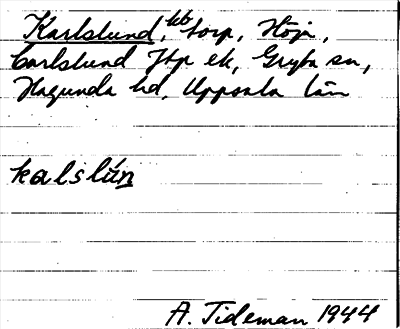 Karlslund, hb, torp, Höja,
Carlslund Jtp ek, Gryta sn,
Hagunda hd, Uppsala län
kalslún
A. Tideman 1944